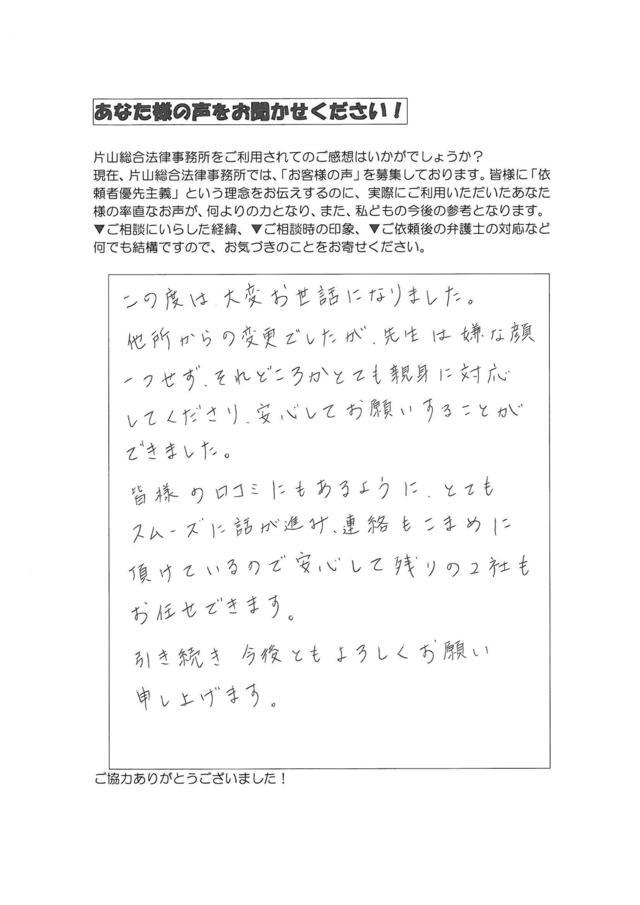 あなた様の声をお聞かせください！
片山総合法律事務所をご利用されてのご感想はいかがでしょうか？
現在、片山総合法律事務所では、「お客様の声」を募集しております。皆様に「依
頼者優先主義」という理念をお伝えするのに、実際にご利用いただいたあなた
様の率直なお声が、何よりの力となり、また、私どもの今後の参考となります。
▼ご相談にいらした経緯、▼ご相談時の印象、▼ご依頼後の弁護士の対応など
何でも結構ですので、お気づきのことをお寄せください。
この度は大変お世話になりました。
他所からの変更でしたが、先生は嫌な顔
一つせず、それどころかとても親身に対応
してくださり、安心してお願いすることが
できました。
皆様の口コミにもあるように、とても
スムーズに話が進み、連絡もこまめに
頂けているので安心して残りの2社も
お任せできます。
引き続き今後ともよろしくお願い
申し上げます。
ご協力ありがとうございました！